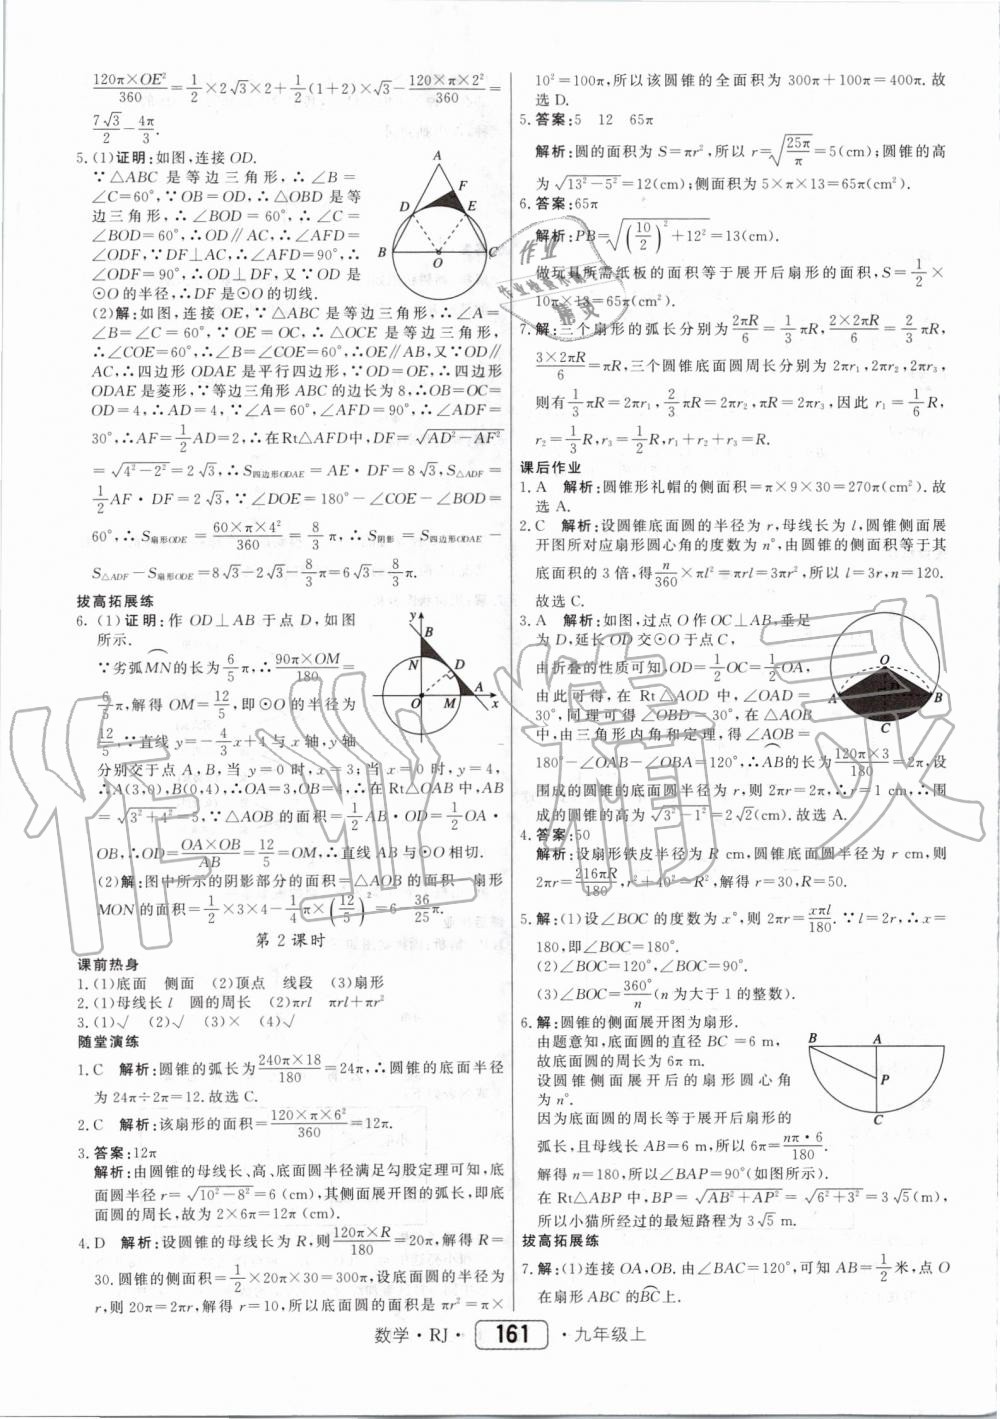 120π×OE²/360=1/2×2√3×2+1/2(1+2)×√3-120×π×2²/360=
7√3/2-4π/3.
5.(1)证明:如图,连接OD.
∵△ABC是等边三角形,∴∠B=
∠C=60°,∵OB=OD,∴△OBD是等
边三角形,∴∠BOD=60°,∴∠C=
∠BOD=60°,∴OD∥AC,∴∠AFD=
∠ODF,∵DF⊥AC,∴∠AFD=90°,
∴∠ODF=90°,∴OD⊥DF,又∵OD是
⊙O的半径,∴DF是⊙O的切线.
A
F
D
E
B
O
C
(2)解:如图,连接OE,∵△ABC是等边三角形,∴∠A=
∠B=∠C=60°,∵OE=OC,∴△OCE是等边三角形,
∴∠COE=60°,∴∠COE=∠B,∴OE∥AB,又∵OD∥
AC,∴四边形ODAE是平行四边形,∵OD=OE,∴四边形
ODAE是菱形,∵等边三角形ABC的边长为8,∴OB=OC=
OD=4,∴AD=4,∵∠A=60°,∠AFD=90°,∴∠ADF=
30°,∴AF=1/2AD=2,∴在Rt△AFD中,DF=√(AD²-AF²)
=√(4²-2²)=2√3,∴S四边形ODAE=AE·DF=8√3,S△ADF=
1/2AF·DF=2√3,∵∠DOE=180°-∠COE-∠BOD=
60°,∴S扇形ODE=60×π×4²/360=8/3π,∴S阴影=S四边形ODAE-
S△ADF-S扇形ODE=8√3-2√3-8/3π=6√3-8/3π.
拔高拓展练
6.(1)证明:作OD⊥AB于点D,如图
所示.
∵劣弧MN的长为6/5π,∴90π×OM/180=
6/5π,解得OM=12/5,即⊙O的半径为
12/5,∵直线y=-4/3x+4与x轴,y轴
y
B
N
D
A
O
M
x
分别交于点A,B,当y=0时,x=3;当x=0时,y=4,
∴A(3,0),B(0,4),∴OA=3,OB=4,∴在Rt△OAB中,AB
=√(3²+4²)=5,∵△AOB的面积=1/2AB·OD=1/2OA·
OB,∴OD=OA×OB/AB=12/5=OM,∴直线AB与⊙O相切.
(2)解:图中所示的阴影部分的面积=△AOB的面积-扇形
MON的面积=1/2×3×4-1/4π×(12/5)²=6-36/25π.
第2课时
课前热身
1.(1)底面 侧面 (2)顶点 线段 (3)扇形
2.(1)母线长l 圆的周长 (2)πrl πrl+πr²
3.(1)√ (2)√ (3)× (4)√
随堂演练
1.C 解析:圆锥的弧长为240π×18/180=24π,∴圆锥的底面半径
为24π÷2π=12.故选C.
2.C 解析:该扇形的面积=120×π×6²/360=12π.
3.答案:12π
解析:由圆锥的母线长、高、底面圆半径满足勾股定理可知,底
面圆半径r=√(10²-8²)=6(cm),其侧面展开图的弧长,即底
面圆的周长,故为2×6π=12π(cm).
4.D 解析:设圆锥的母线长为R,则120π×R/180=20π,解得R=
30.圆锥的侧面积=1/2×20π×30=300π,设底面圆的半径为
r,则20π=2πr,解得r=10,所以底面圆的面积是πr²=π×
10²=100π,所以该圆锥的全面积为300π+100π=400π.故
选D.
5.答案:5 12 65π
解析:圆的面积为S=πr²,所以r=√(25π/π)=5(cm);圆锥的高
为√(13²-5²)=12(cm);侧面积为5×π×13=65π(cm²).
6.答案:65π
解析:PB=√((10/2)²+12²)=13(cm).
做玩具所需纸板的面积等于展开后扇形的面积,S=1/2×
10π×13=65π(cm²).
7.解:三个扇形的弧长分别为2πR/6=1/3πR,2×2πR/6=2/3πR,
3×2πR/6=πR,三个圆锥底面圆周长分别为2πr₁,2πr₂,2πr₃,
则有1/3πR=2πr₁,2/3πR=2πr₂,πR=2πr₃,因此r₁=1/6R,
r₂=1/3R,r₃=1/2R,r₁+r₂+r₃=R.
课后作业
1.A 解析:圆锥形礼帽的侧面积=π×9×30=270π(cm²).故
选A.
2.C 解析:设圆锥底面圆的半径为r,母线长为l,圆锥侧面展
开图所对应扇形圆心角的度数为n°,由圆锥的侧面积等于其
底面积的3倍,得n/360×πl²=πrl=3πr²,所以l=3r,n=120.
故选C.
3.A 解析:如图,过点O作OC⊥AB,垂足
为D,延长OD交⊙O于点C,
由折叠的性质可知,OD=1/2OC=1/2OA,
由此可得,在Rt△AOD中,∠OAD=
30°,同理可得∠OBD=30°,在△AOB
中,由三角形内角和定理,得∠AOB=
O
A
D
B
C
180°-∠OAB-∠OBA=120°,∴AB的长为120π×3/180=2π,设
围成的圆锥的底面圆半径为r,则2πr=2π,∴r=1 cm,∴围
成的圆锥的高为√(3²-1²)=2√2(cm).故选A.
4.答案:50
解析:设扇形铁皮半径为R cm,圆锥底面圆半径为r cm,则
2πr=216πR/180,r²+40²=R²,解得r=30,R=50.
5.解:(1)设∠BOC的度数为x°,则2πr=xπl/180.∵l=2r,∴x=
180,即∠BOC=180°.
(2)∠BOC=120°,∠BOC=90°.
(3)∠BOC=360°/n(n为大于1的整数).
6.解:圆锥的侧面展开图为扇形.
由题意知,底面圆的直径BC=6 m,
故底面圆的周长为6π m.
设圆锥侧面展开后的扇形圆心角
为n°.
因为底面圆的周长等于展开后扇形的
B
A
P
C
弧长,且母线长AB=6 m,所以6π=nπ·6/180.
解得n=180,所以∠BAP=90°(如图所示).
在Rt△ABP中,BP=√(AB²+AP²)=√(6²+3²)=3√5(m),
所以小猫所经过的最短路程为3√5 m.
拔高拓展练
7.解:(1)连接OA,OB.由∠BAC=120°,可知AB=1/2米,点O
在扇形ABC的BC上.
数学·RJ· 161 ·九年级上
作业精灵
作业
作业检查小
精灵